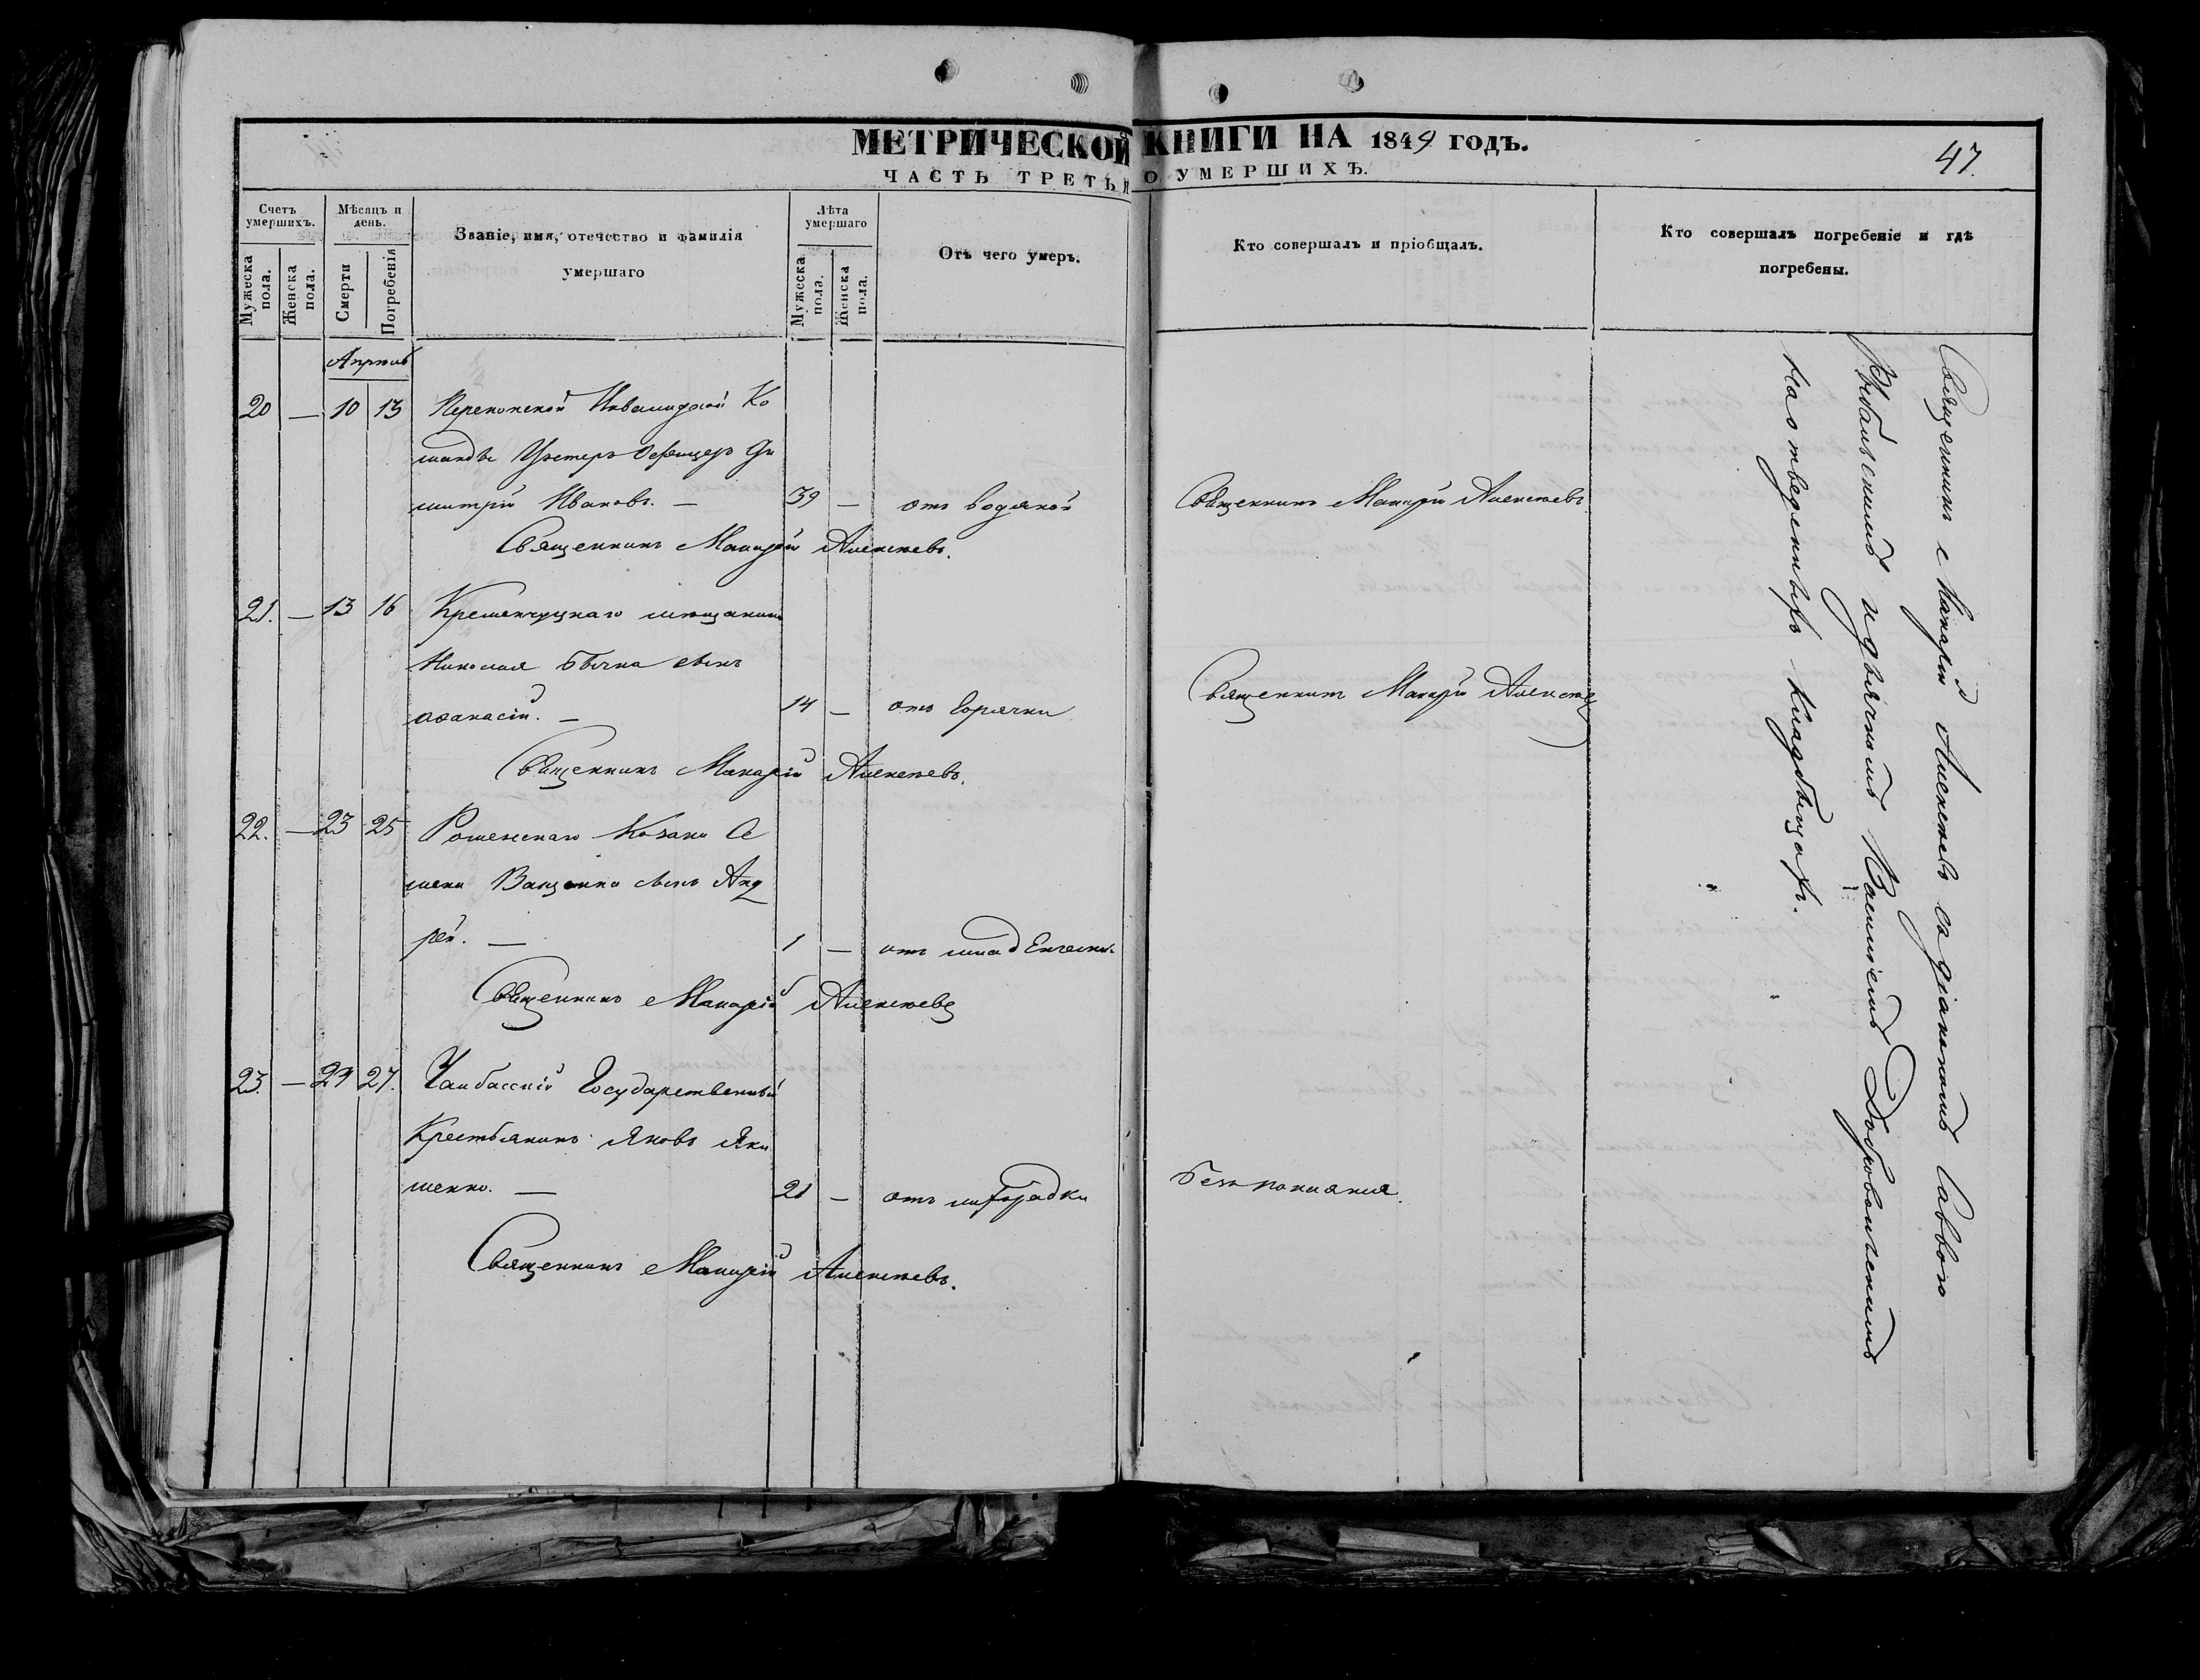 МЕТРИЧЕСКОЙ КНИГИ НА 1849 ГОДЪ.
47.
ЧАСТЬ ТРЕТЬЯ О УМЕРШИХЪ.
Счетъ умершихъ.
Мужеска пола.
Женска пола.
Мѣсяцъ и день.
Смерти
Погребенія
Званіе, имя, отечество и фамилія
умершаго
Лѣта умершаго
Мужеска пола.
Женска пола.
Отъ чего умеръ.
Кто совершалъ и пріобщалъ.
Кто совершалъ погребеніе и гдѣ
погребены.
Апрѣль
20 — 10 13 Перекопской Инвалидной Ко
манды Унтеръ Офицеръ Ди
митрій Ивановъ. — 39 — отъ водяной Священникъ Макарій Алексѣевъ.
Священникъ Макарій Алексѣевъ.
21. — 13 16 Кременчуцкаго мѣщанина
Николая Бычка сынъ
Афанасій. — 14 — отъ горячки Священникъ Макарій Алексѣевъ
Священникъ Макарій Алексѣевъ.
22. — 23 25 Казака Се
мена Ващенко сынъ Анд
рей. — 1 — отъ младенческой
Священникъ Макарій Алексѣевъ
23. — 29 27. Чалбасскій Государственный
Крестьянинъ Яковъ Яки
менко. — 21 — отъ лихорадки Безъ покаянія.
Священникъ Макарій Алексѣевъ.
Священникъ Макарій Алексѣевъ съ діакономъ Саввою
и дьячкомъ Василіемъ Добровольскимъ
На отведенныхъ кладбищахъ.